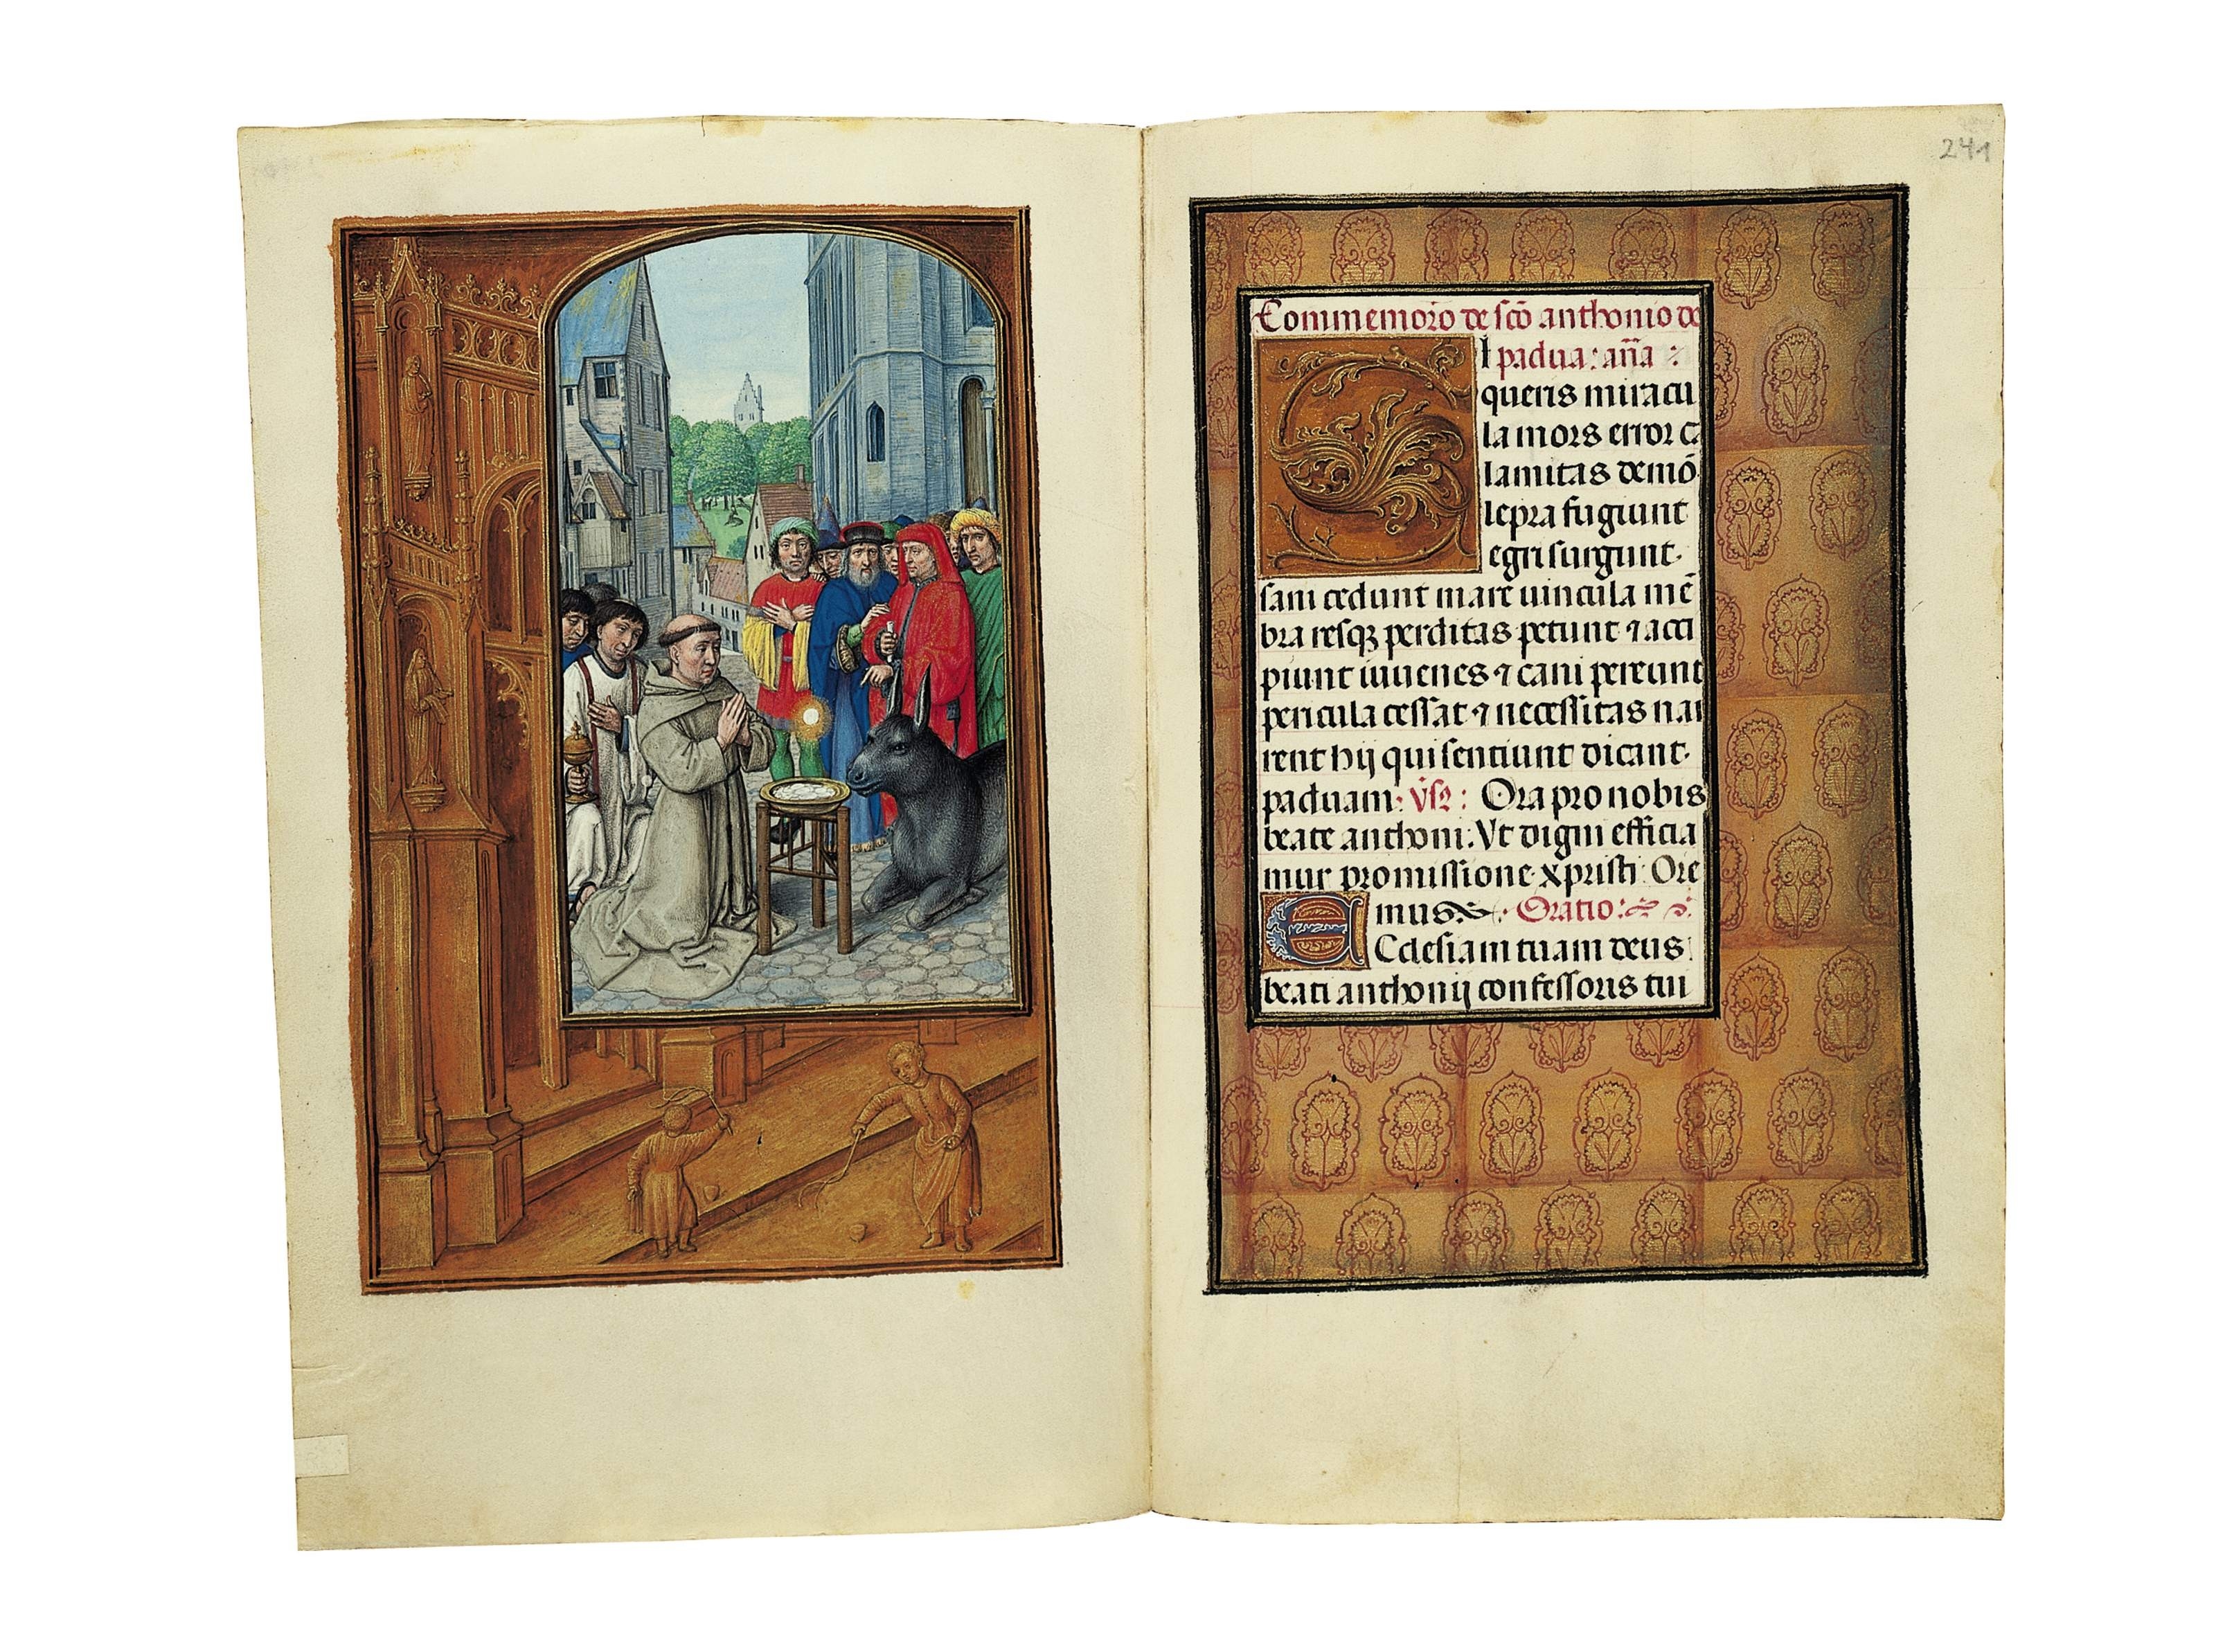 241
Commemorō de scō anthonio de
SI padua: aña :
queris miracu
la mors error ca
lamitas demō
lepra fugiunt
egri surgunt.
sani cedunt mare uincula mē
bra resqꝫ perditas petunt ⁊ acci
piunt iuuenes ⁊ cani pereunt
pericula cessat ⁊ necessitas nar
rent hij qui sentiunt dicant
paduam: Vsꝫ: Ora pro nobis
beate anthoni: Vt digni efficia
mur promissione xpristi: Ore
mus: Oratio:
ECclesiam tuam deus
beati anthonij confessoris tui